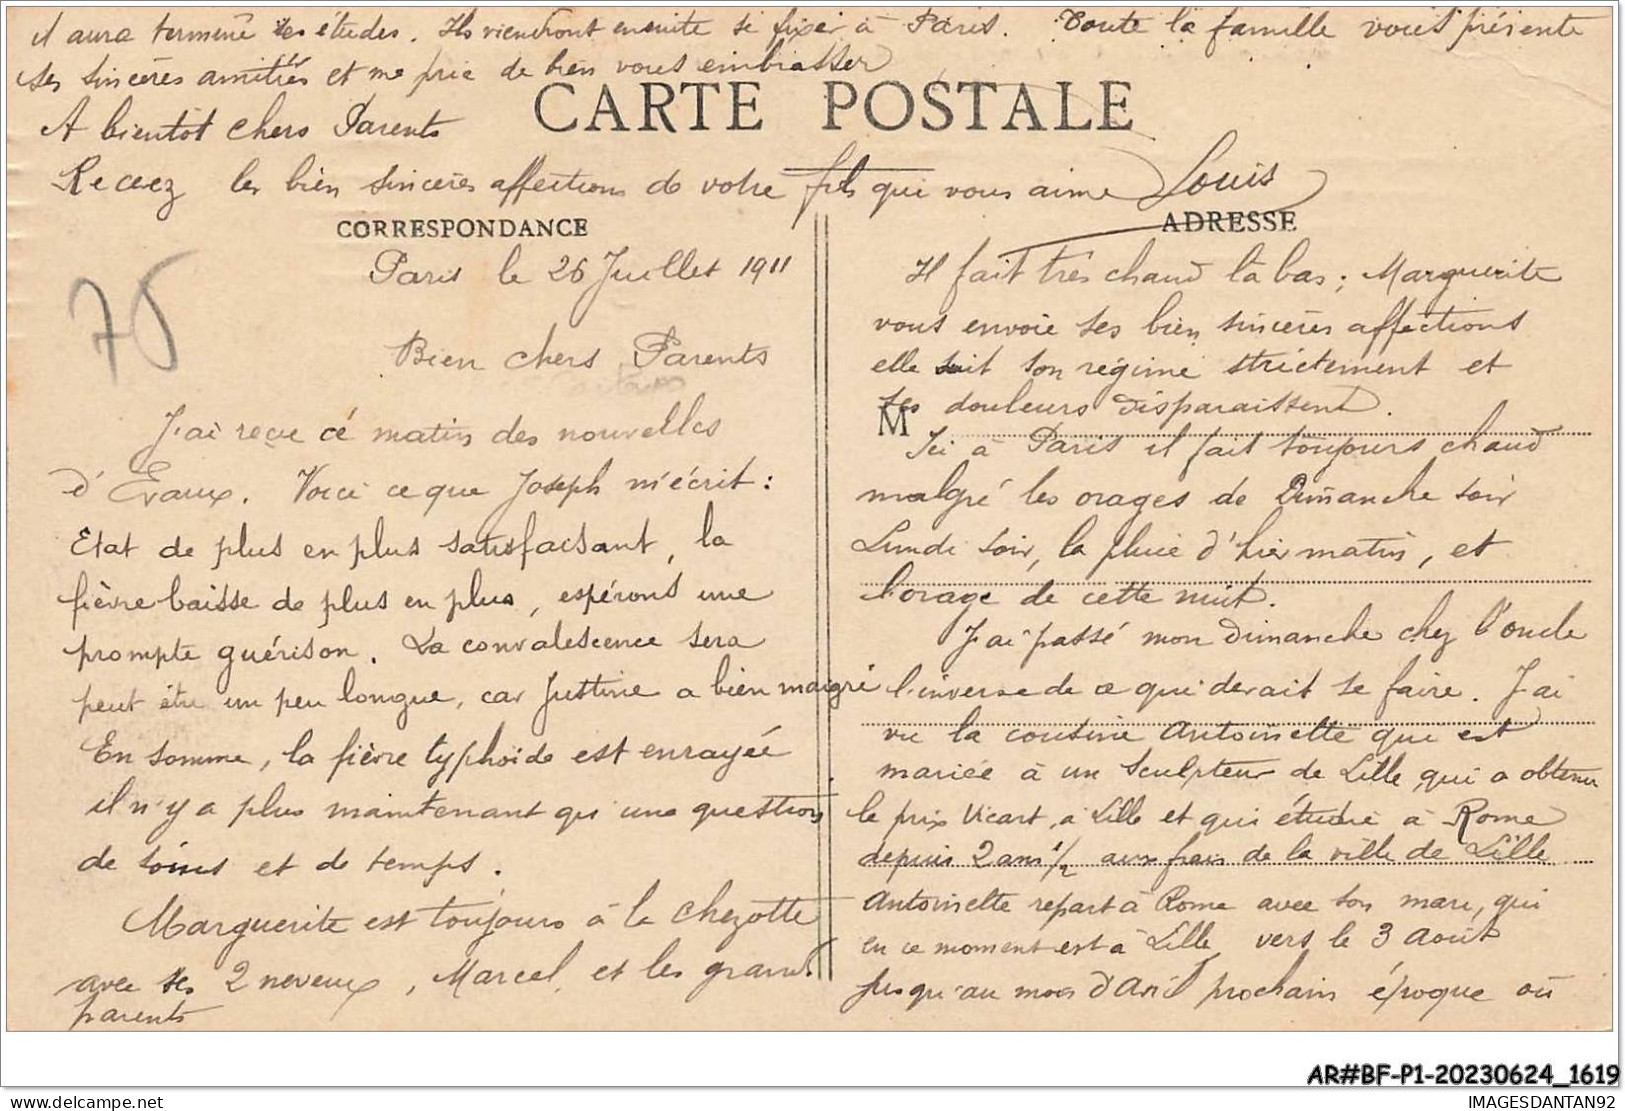 il aura terminé ses études. Ils viendront ensuite se fixer à Paris. Toute la famille vous présente
ses sincères amitiés et me prie de bien vous embrasser
CARTE POSTALE
A bientôt chers Parents
Recevez les bien sincères affections de votre fils qui vous aime Louis
CORRESPONDANCE
75
Paris le 26 Juillet 1911
Bien chers Parents
J'ai reçu cé matin des nouvelles
d'Evaux. Voici ce que Joseph m'écrit :
Etat de plus en plus satisfaisant, la
fièvre baisse de plus en plus, espérons une
prompte guérison. La convalescence sera
peut être un peu longue, car Justine a bien maigri
En somme, la fièvre typhoïde est enrayée
il n'y a plus maintenant qu'une question
de soins et de temps.
Marguerite est toujours à la Chezotte
avec ses 2 neveux, Marcel, et les grands
parents
ADRESSE
Il fait très chaud là bas ; Marguerite
vous envoie ses bien sincères affections
elle suit son régime strictement et
ses douleurs disparaissent.
M
Ici à Paris il fait toujours chaud
malgré les orages de Dimanche soir
Lundi soir, la pluie d'hier matin, et
l'orage de cette nuit.
J'ai passé mon dimanche chez l'oncle
l'inverse de ce qui devait se faire. J'ai
vu la cousine Antoinette qui est
mariée à un sculpteur de Lille, qui a obtenu
le prix Vicart, à Lille et qui étudie à Rome
depuis 2 ans 1/2 aux frais de la ville de Lille
Antoinette repart à Rome avec son mari, qui
en ce moment est à Lille, vers le 3 Août
jusqu'au mois d'Avril prochain époque où
AR#BF-P1-20230624_1619
delcampe.net
IMAGESDANTAN92